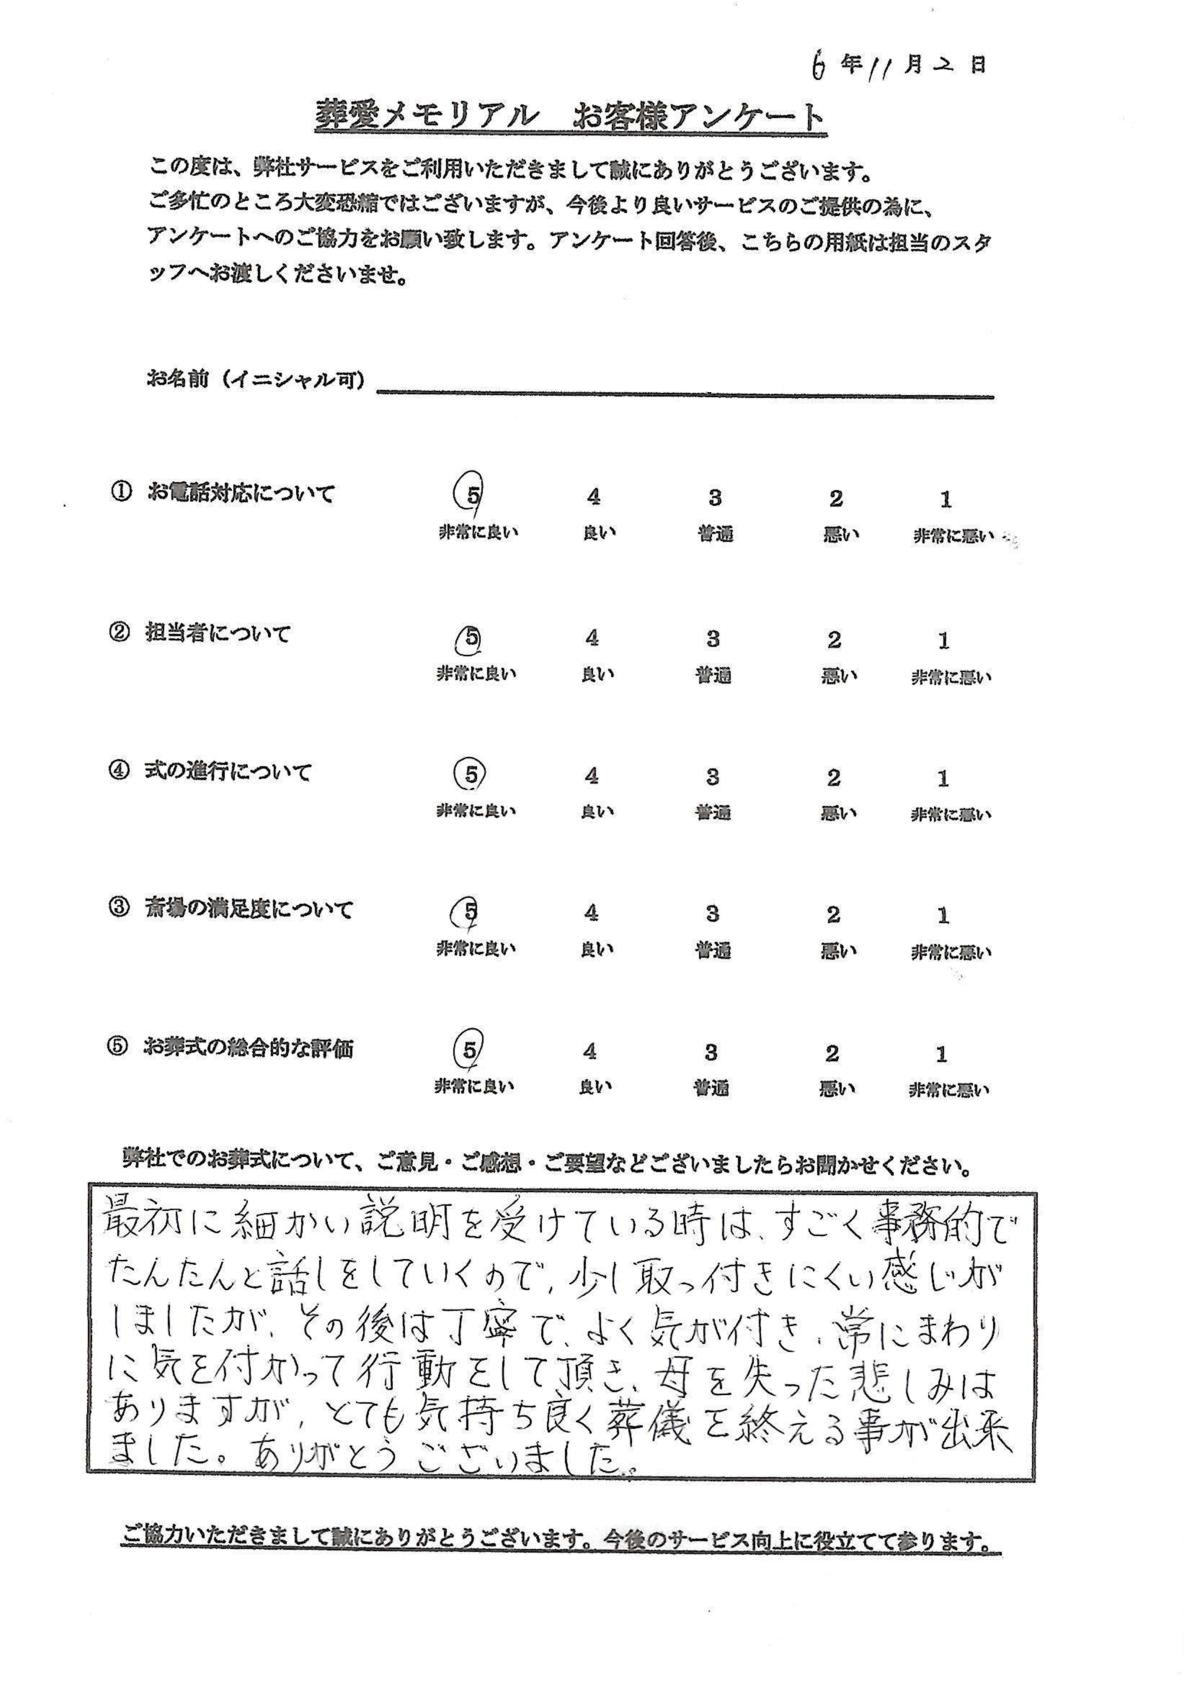 6年11月2日
葬愛メモリアル　お客様アンケート
この度は、弊社サービスをご利用いただきまして誠にありがとうございます。
ご多忙のところ大変恐縮ではございますが、今後より良いサービスのご提供の為に、
アンケートへのご協力をお願い致します。アンケート回答後、こちらの用紙は担当のスタ
ッフへお渡しくださいませ。
お名前（イニシャル可）
① お電話対応について 5 4 3 2 1
非常に良い 良い 普通 悪い 非常に悪い
② 担当者について 5 4 3 2 1
非常に良い 良い 普通 悪い 非常に悪い
④ 式の進行について 5 4 3 2 1
非常に良い 良い 普通 悪い 非常に悪い
③ 斎場の満足度について 5 4 3 2 1
非常に良い 良い 普通 悪い 非常に悪い
⑤ お葬式の総合的な評価 5 4 3 2 1
非常に良い 良い 普通 悪い 非常に悪い
弊社でのお葬式について、ご意見・ご感想・ご要望などございましたらお聞かせください。
最初に細かい説明を受けている時は、すごく事務的で
たんたんと話しをしていくので、少し取っ付きにくい感じが
しましたが、その後は丁寧で、よく気が付き、常にまわり
に気を付かって行動をして頂き、母を失った悲しみは
ありますが、とても気持ち良く葬儀を終える事が出来
ました。ありがとうございました。
ご協力いただきまして誠にありがとうございます。今後のサービス向上に役立てて参ります。